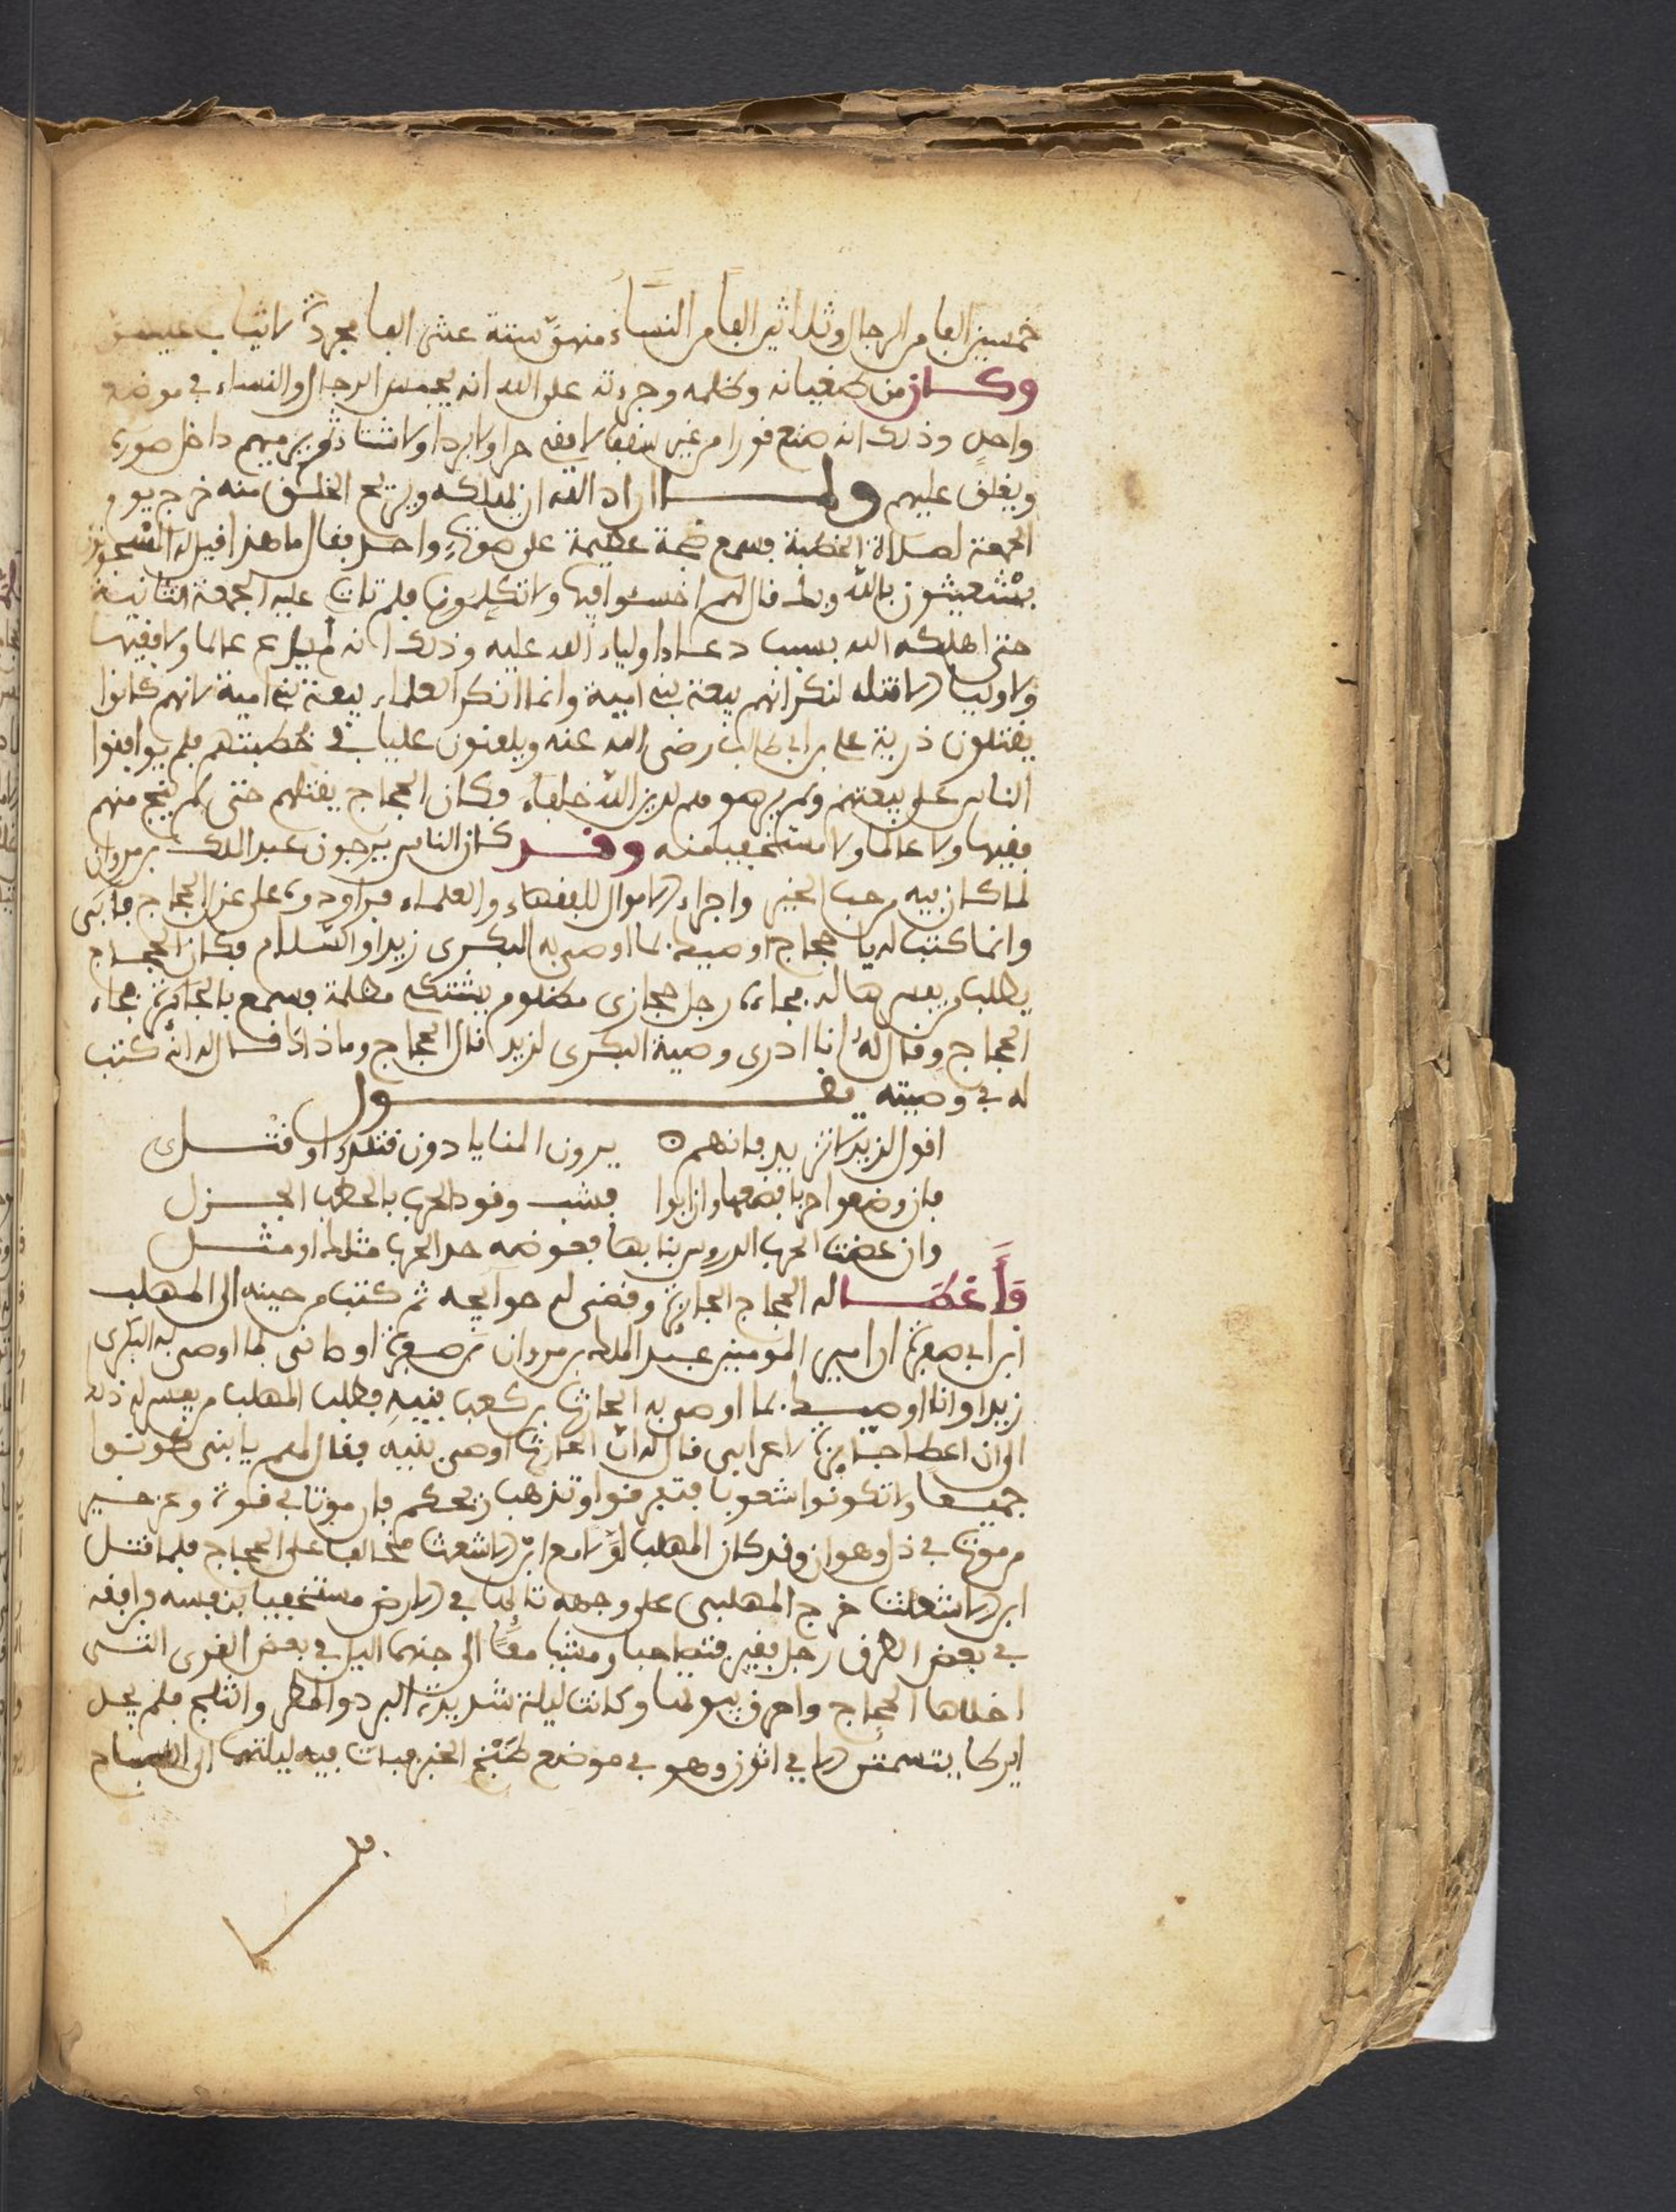 خمسين الفا من الرجال وثلاثين الفا من النساء منهن ستة عشر الفا مجردة لا ثياب عليهن
وكان من طغيانه وظلمه وجرءته على الله انه يحبس الرجال والنساء في موضع
واحد وذلك انه صنع سورا من غير سقف لا يقي حرا ولا بردا ولا شتاء ثم يرميهم داخل
ويغلق عليهم ولما اراد الله ان يهلكه ويريح الخلق منه خرج يوم
الجمعة لصلاة الخطبة فسمع ضجة عظيمة على صوت واحد فقال ما هذا قيل له المسجونون
يستغيثون بالله وبك قال لهم اخسئوا فيها ولا تكلمون فلم تات عليه الجمعة الثانية
حتى اهلكه الله بسبب دعاء اولياء الله عليه وذلك انه لم يدع عالما ولا فقيها
ولا وليا الا قتله لنكرانهم بيعة بني امية وانما انكر العلماء بيعة بني امية لانهم كانوا
يقتلون ذرية علي بن ابي طالب رضي الله عنه ويلعنون عليا في خطبتهم فلم يوافقوا
الناس على بيعتهم ولم يرهموهم لدين الله خلفاء فكان الحجاج يقتلهم حتى لم ينج منهم
فقيها ولا عالما ولا مستخفيا منه وقد كان الناس يرجون عبد الملك بن مروان
لما كان فيه من حب الخير واجراء الاموال للفقهاء والعلماء فراودوه على عزل الحجاج فابى
وانما كتب له يا حجاج اوصيك بما اوصى به البكري زيدا والسلام فكان الحجاج
يطلب من يفسرها له فجاءه رجل حجازي مظلوم يشتكي مظلمة فسمع بالجائزة فجاء
الحجاج وقال له انا ادري وصية البكري لزيد قال الحجاج وما ذاك قال له انه كتب
له في وصيته يقول
اقول لزيد لا تثرثر فانهم ه يرون المنايا دون قتلك او قتلي
فان وضعوا حربا فضعها وان ابوا فشب وقود الحرب بالحطب الجزل
وان عضت الحرب الدروس بنابها فعوضه حد الحرب مثلك او مثلي
فاعطا له الحجاج الجائزة وقضى له حوائجه ثم كتب من حينه الى المهلب
ابن ابي صفرة ان امير المومنين عبد الملك بن مروان اوصاني بما اوصى به البكري
زيدا وانا اوصيك بما اوصى به الحارث بن كعب بنيه فطلب المهلب من يفسر له ذلك
الى ان اعطا جائزة لاعرابي قال له ان الحارث اوصى بنيه فقال لهم يا بني كونوا
جميعا ولا تكونوا شعوبا فتفرقوا وتذهب ريحكم فان موتا في قوة وعز خير
من موت في ذل وهوان وقد كان المهلب اولا مع ابن الاشعث مخالفا على الحجاج فلما قتل
ابن الاشعث خرج المهلبي على وجهه تائها في الارض مستخفيا بنفسه فرافقه
في بعض الطرق رجل فقير فتصاحبا ومشيا معا الى جنهما اليل في بعض القرى التي
اخلاها الحجاج واحرق بيوتها وكانت ليلة شديدة البرد والمطر والثلج فلم يجد
اين يتسمتر الا في اتون وهو في موضع طبخ الخبز فبات فيه ليلتهما الى الصباح